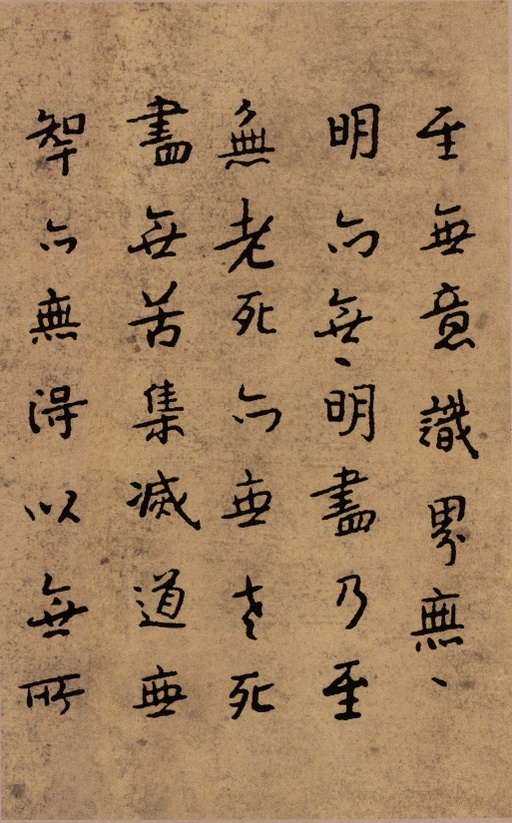 至無意識界無〻
明亦無〻明盡乃至
無老死亦無老死
盡無苦集滅道無
智亦無得以無所